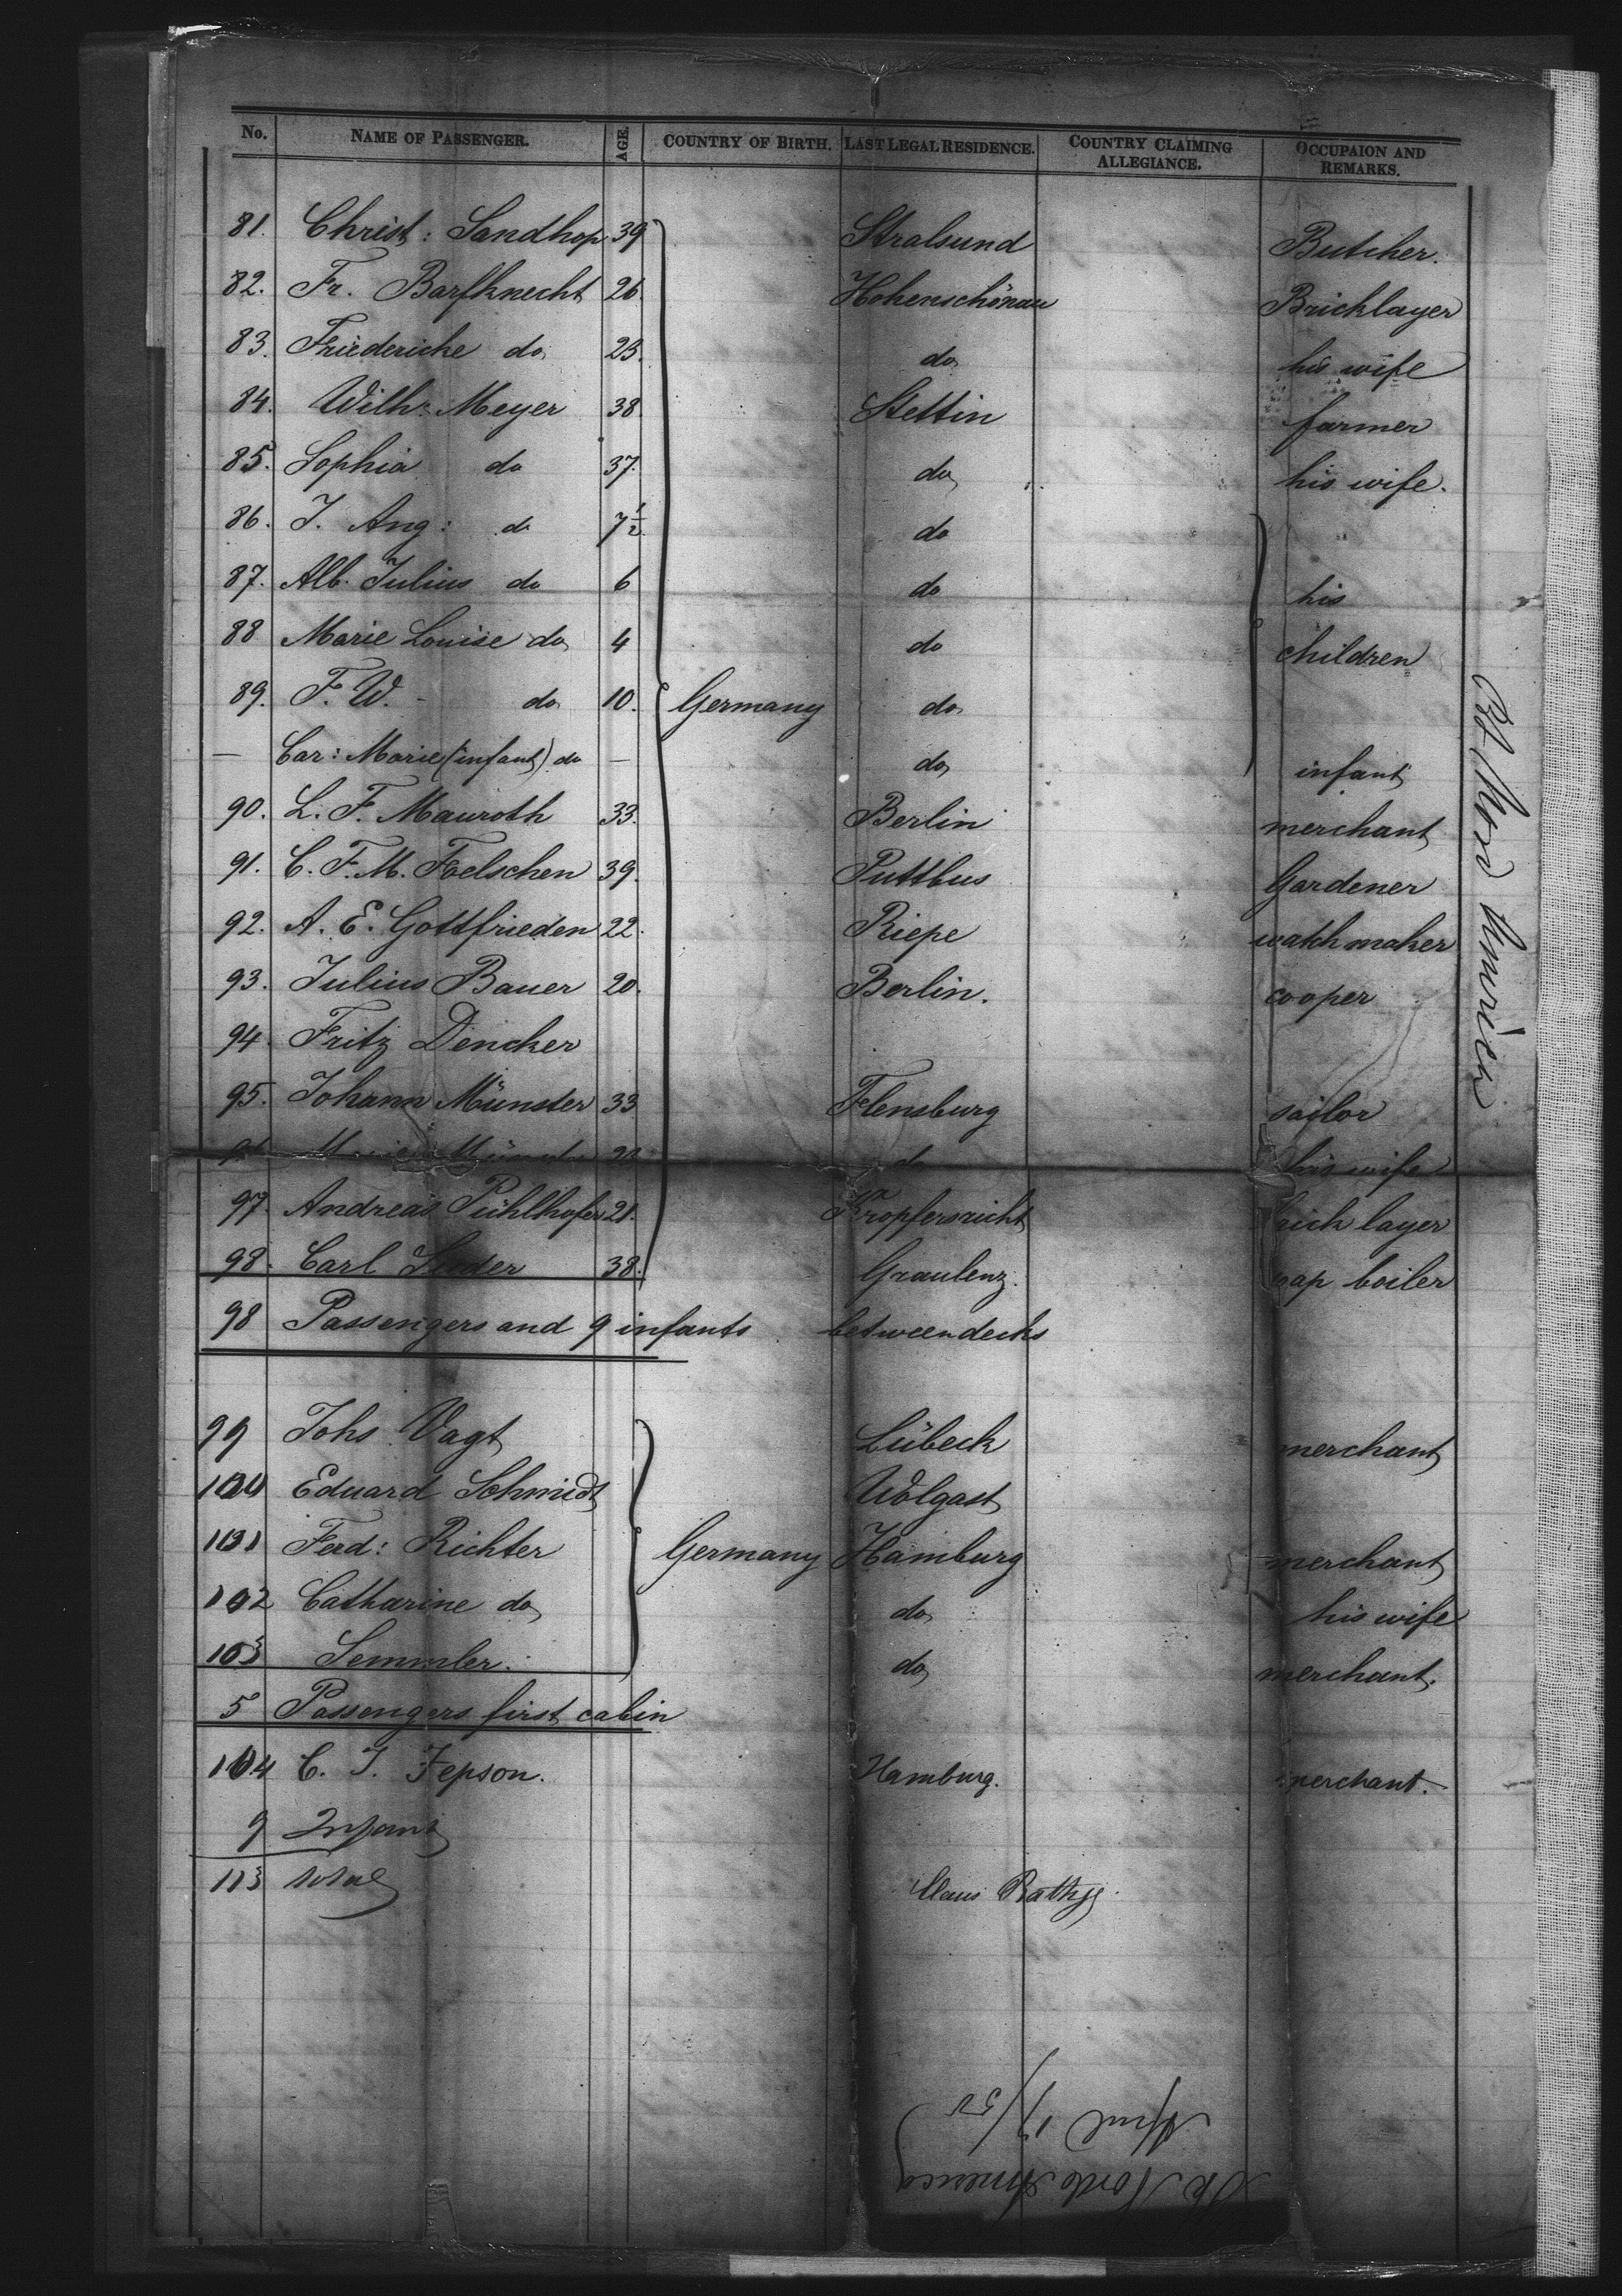 No. NAME OF PASSENGER. AGE. COUNTRY OF BIRTH. LAST LEGAL RESIDENCE. COUNTRY CLAIMING ALLEGIANCE. OCCUPAION AND REMARKS.
81. Christ: Sandhop 39 Stralsund Butcher.
82. Fr. Barfknecht 26. Hohenschönau Bricklayer
83. Friedericke do 23. do his wife
84. Wilh: Meyer 38 Stettin farmer
85. Sophia do 37. do his wife.
86. J. Aug: do 7½ do
87. Alb. Julius do 6 do his
88 Marie Louise do 4 do children
89. F. W. - do 10. Germany do
— Car: Marie (infant) do — do infant
90. L. F. Mauroth 33. Berlin merchant
91. C. F. M. Foelschen 39. Puttbus Gardener
92. A. E. Gottfrieden 22. Riepe watch maker
93. Julius Bauer 20. Berlin. cooper
94. Fritz Dencker
95. Johann Münster 33 Flensburg sailor
do his wife
97. Andreas Pühlhofer 21. Kropfersricht brick layer
98. Carl 38. Graulenz. soap boiler
98 Passengers and 9 infants between decks
99 Johs Vagt Lübeck merchant
100 Eduard Schmidt Wolgast
101 Ferd: Richter Germany Hamburg merchant
102 Catharine do do his wife
103 Semmler. do merchant.
5 Passengers first cabin
104 C. J. Jepson. Hamburg. merchant.
9 Infants
113 total
Claus Rathje
Bk Nord America
Bk Nord America
April 17/50